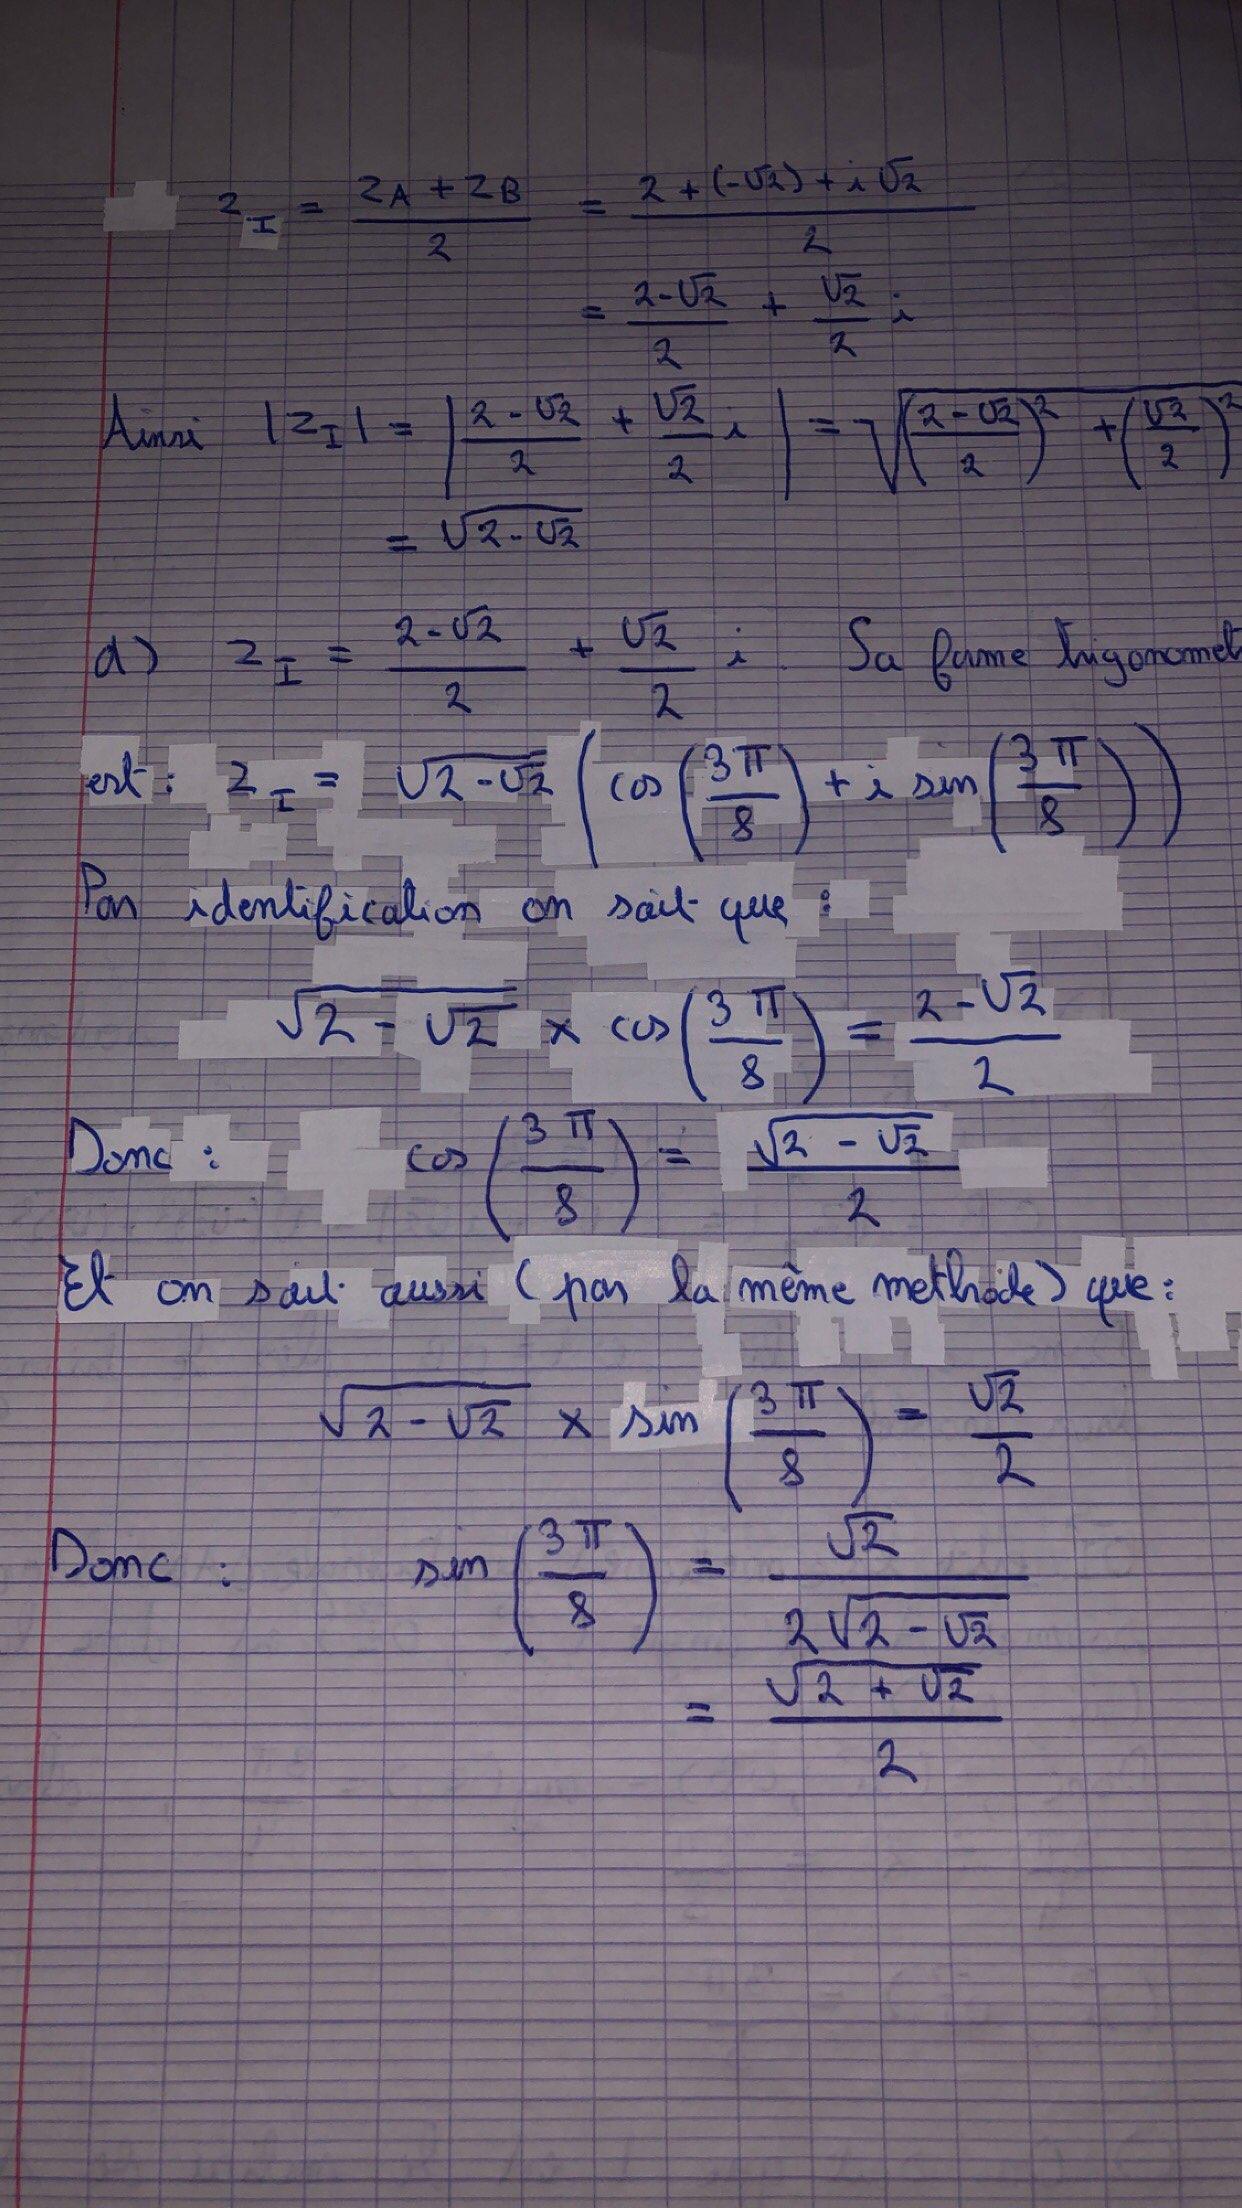 z_I = (z_A + z_B)/2 = (2 + (-√2) + i√2)/2
= (2-√2)/2 + (√2/2) i
Ainsi |z_I| = |(2-√2)/2 + (√2/2) i| = √(((2-√2)/2)² + (√2/2)²)
= √(2-√2)
d) z_I = (2-√2)/2 + (√2/2) i. Sa forme trigonomet
est : z_I = √(2-√2) (cos(3π/8) + i sin(3π/8))
Par identification on sait que :
√(2-√2) × cos(3π/8) = (2-√2)/2
Donc : cos(3π/8) = √(2-√2)/2
Et on sait aussi (par la même methode) que :
√(2-√2) × sin(3π/8) = √2/2
Donc : sin(3π/8) = √2/(2√(2-√2))
= √(2+√2)/2